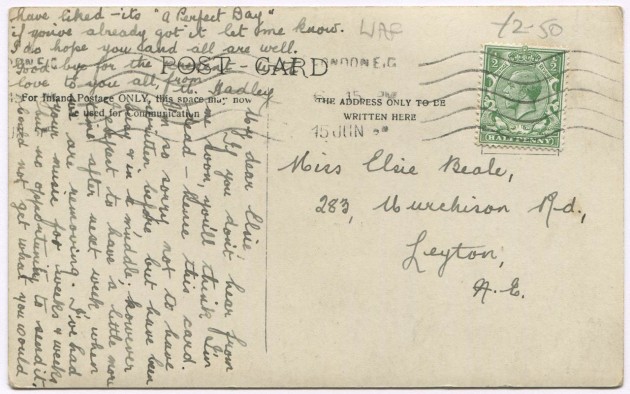 My dear Elsie,
If you don't hear from
me soon, you'll think I'm
dead — hence this card.
I'm so sorry not to have
written before but have been
busy & in a muddle; however
I expect to have a little more
time after next week, when
we are removing. I've had
your music for weeks & weeks
but no opportunity to send it.
I could not get what you would
have liked — its "A Perfect Day"
if you've already got it let me know.
I do hope you and all are well.
Good-bye for the present with
love to you all, from
M. Hadley
WAF
£2-50
POST CARD
For Inland Postage ONLY, this space may now
be used for Communication
THE ADDRESS ONLY TO BE
WRITTEN HERE
LONDON E.C
15 JUN
HALFPENNY
Miss Elsie Beale,
283, Murchison Rd.,
Leyton,
N.E.